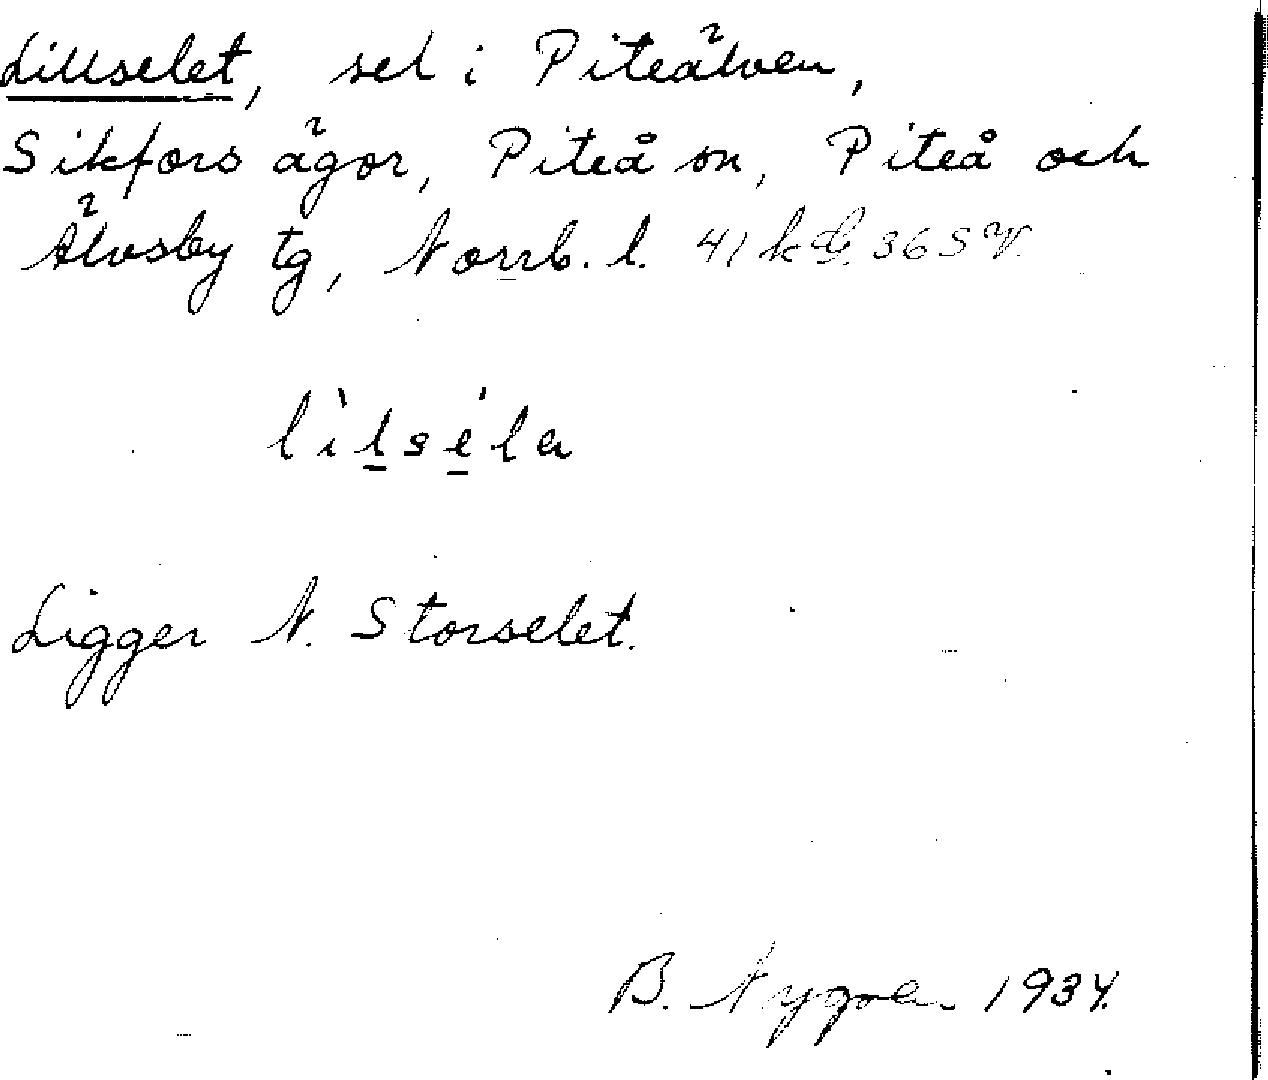 Lillselet, sel i Piteälven,
Sikfors ägor, Piteå sn, Piteå och
Älvsby tg, Norrb. l. 41 k 36 SV.
lìlsèla
Ligger N. Storselet.
B. Nygren 1934.